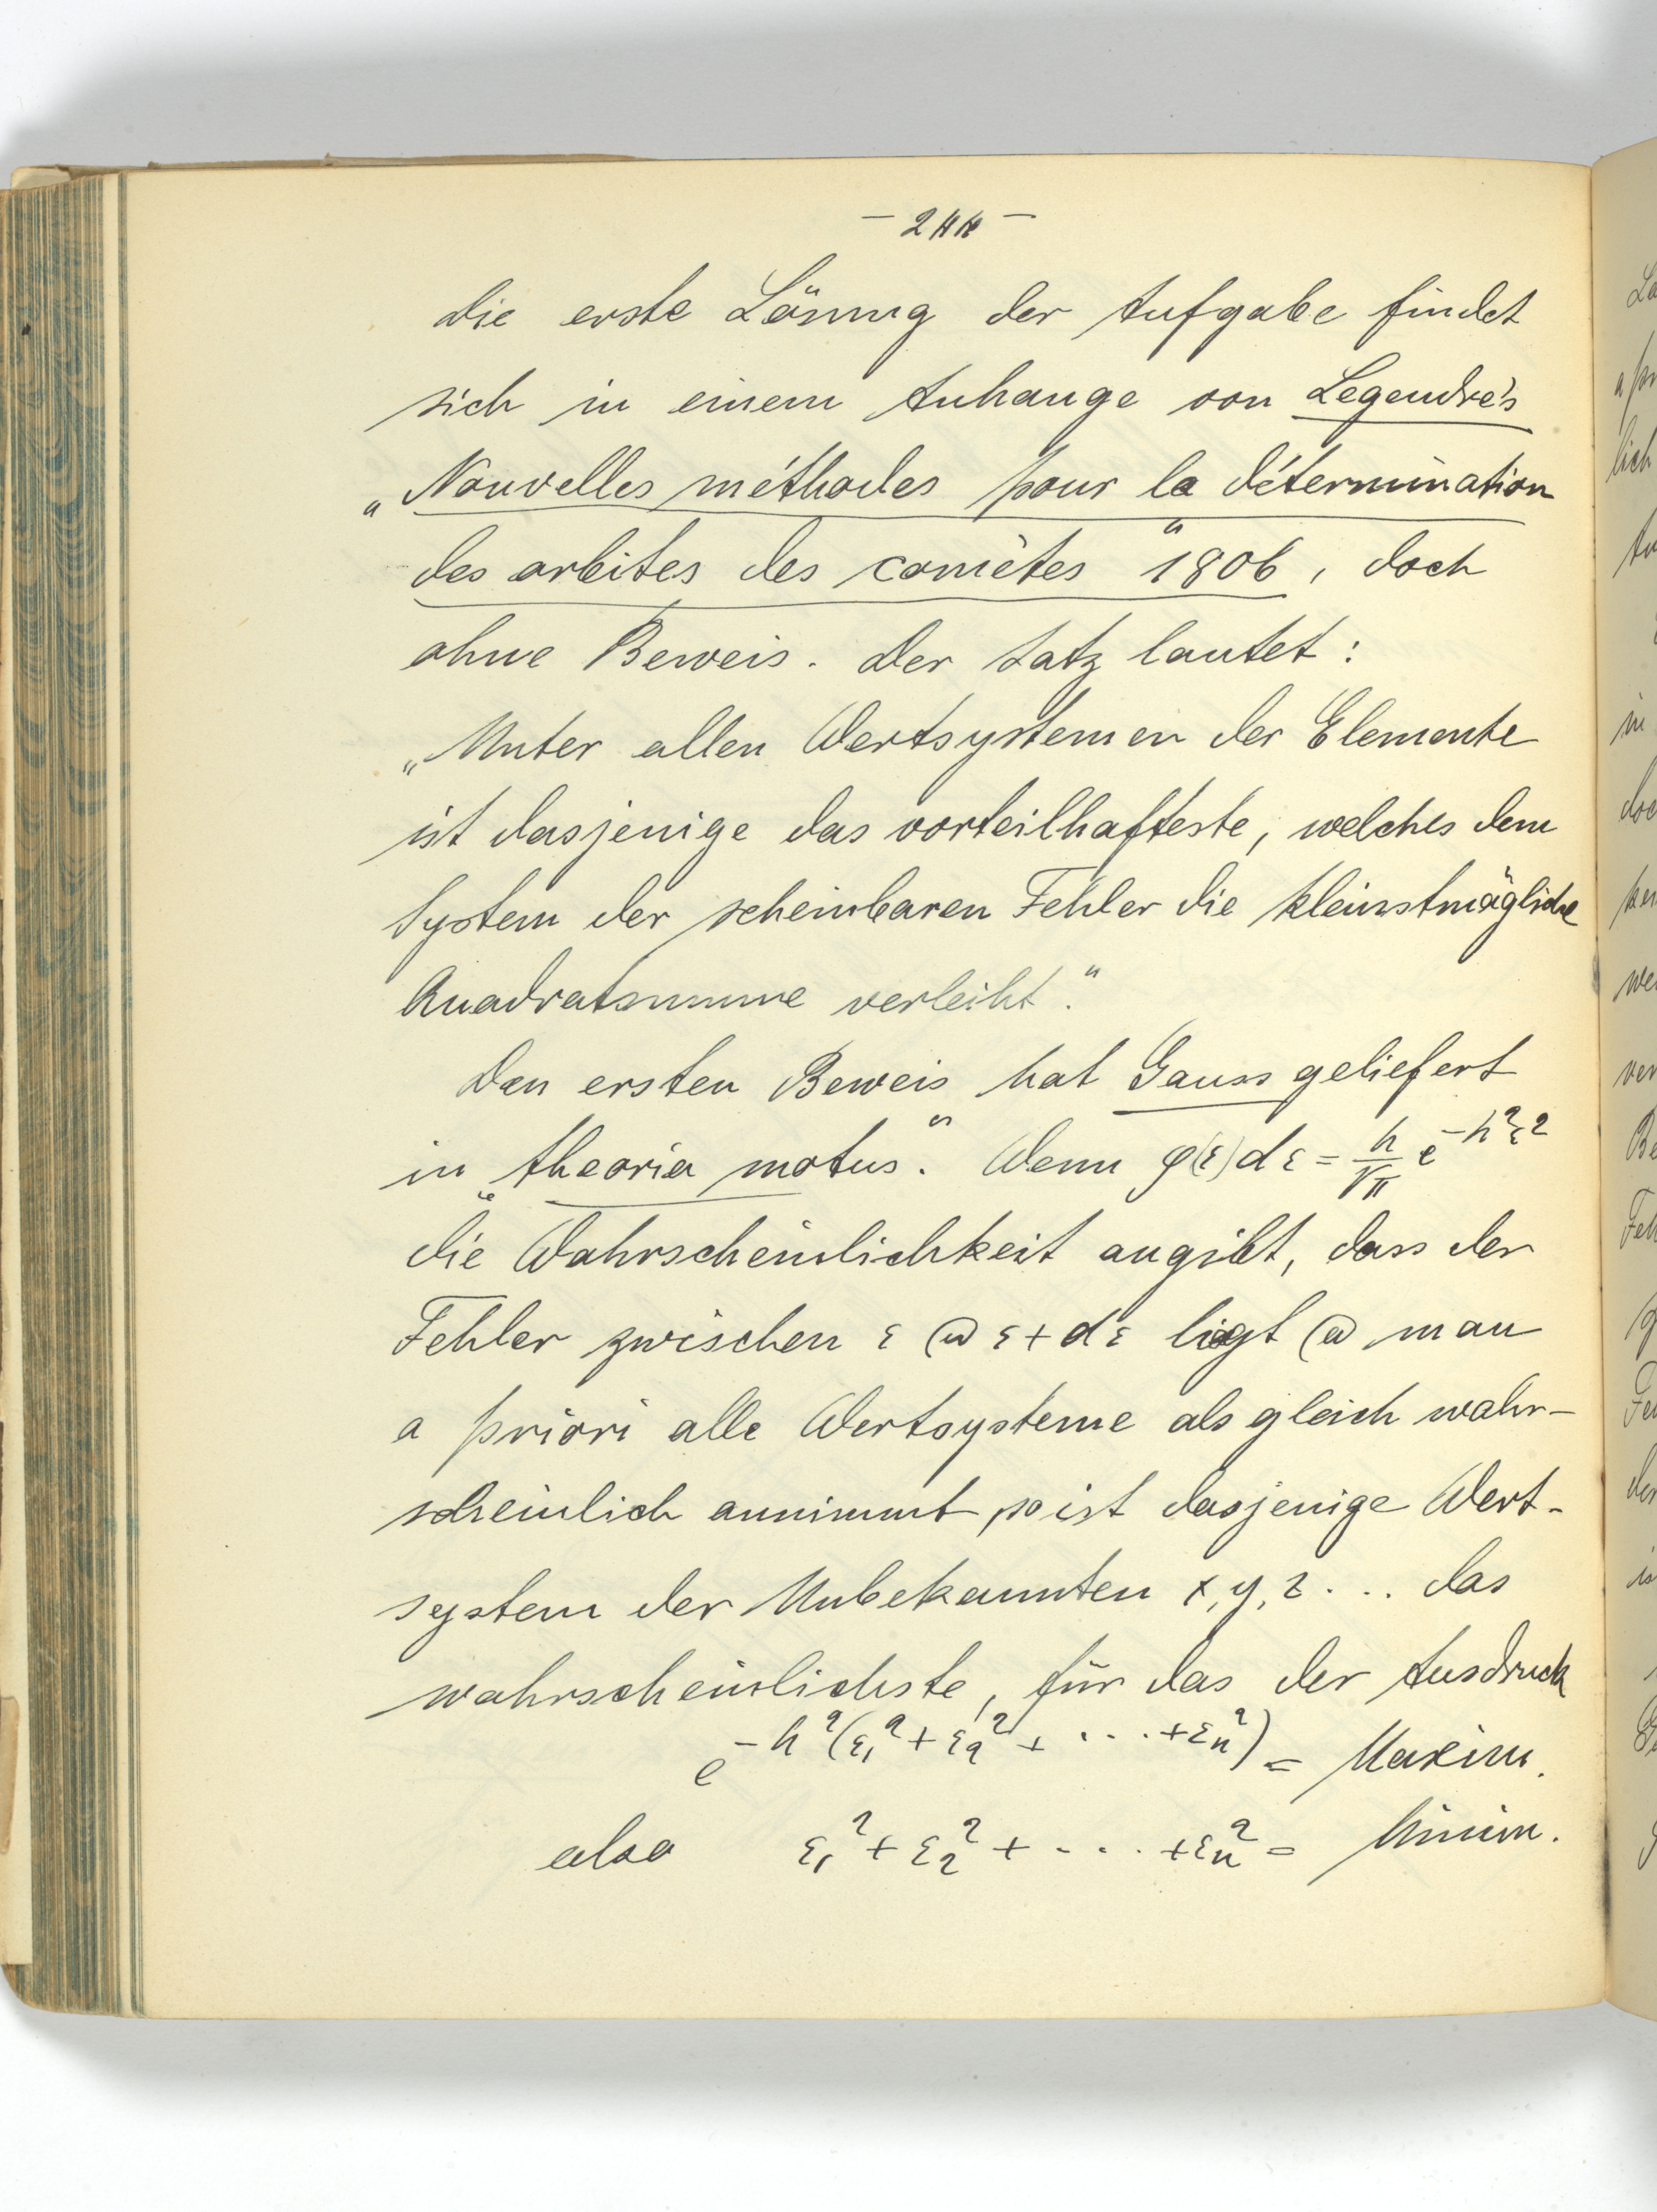 – 244 –
Die erste Lösung der Aufgabe findet
sich in einem Anhange von Legendre's
„Nouvelles méthodes pour la détermination
des orbites des comètes" 1806, doch
ohne Beweis. Der Satz lautet:
„Unter allen Wertsystemen der Elemente
ist dasjenige das vorteilhafteste, welches dem
System der scheinbaren Fehler die kleinstmögliche
Quadratsumme verleiht."
Den ersten Beweis hat Gauss geliefert
in „theoria motus". Wenn φ(ε)dε = h/√π e^{-h²ε²}
die Wahrscheinlichkeit angibt, dass der
Fehler zwischen ε @ ε+dε liegt @ man
a priori alle Wertsysteme als gleich wahr-
scheinlich annimmt, so ist dasjenige Wert-
system der Unbekannten x, y, z ... das
wahrscheinlichste, für das der Ausdruck
e^{-h²(ε₁²+ε₂²+ ... +εₙ²)} = Maxim.
also ε₁² + ε₂² + ... + εₙ² = Minim.